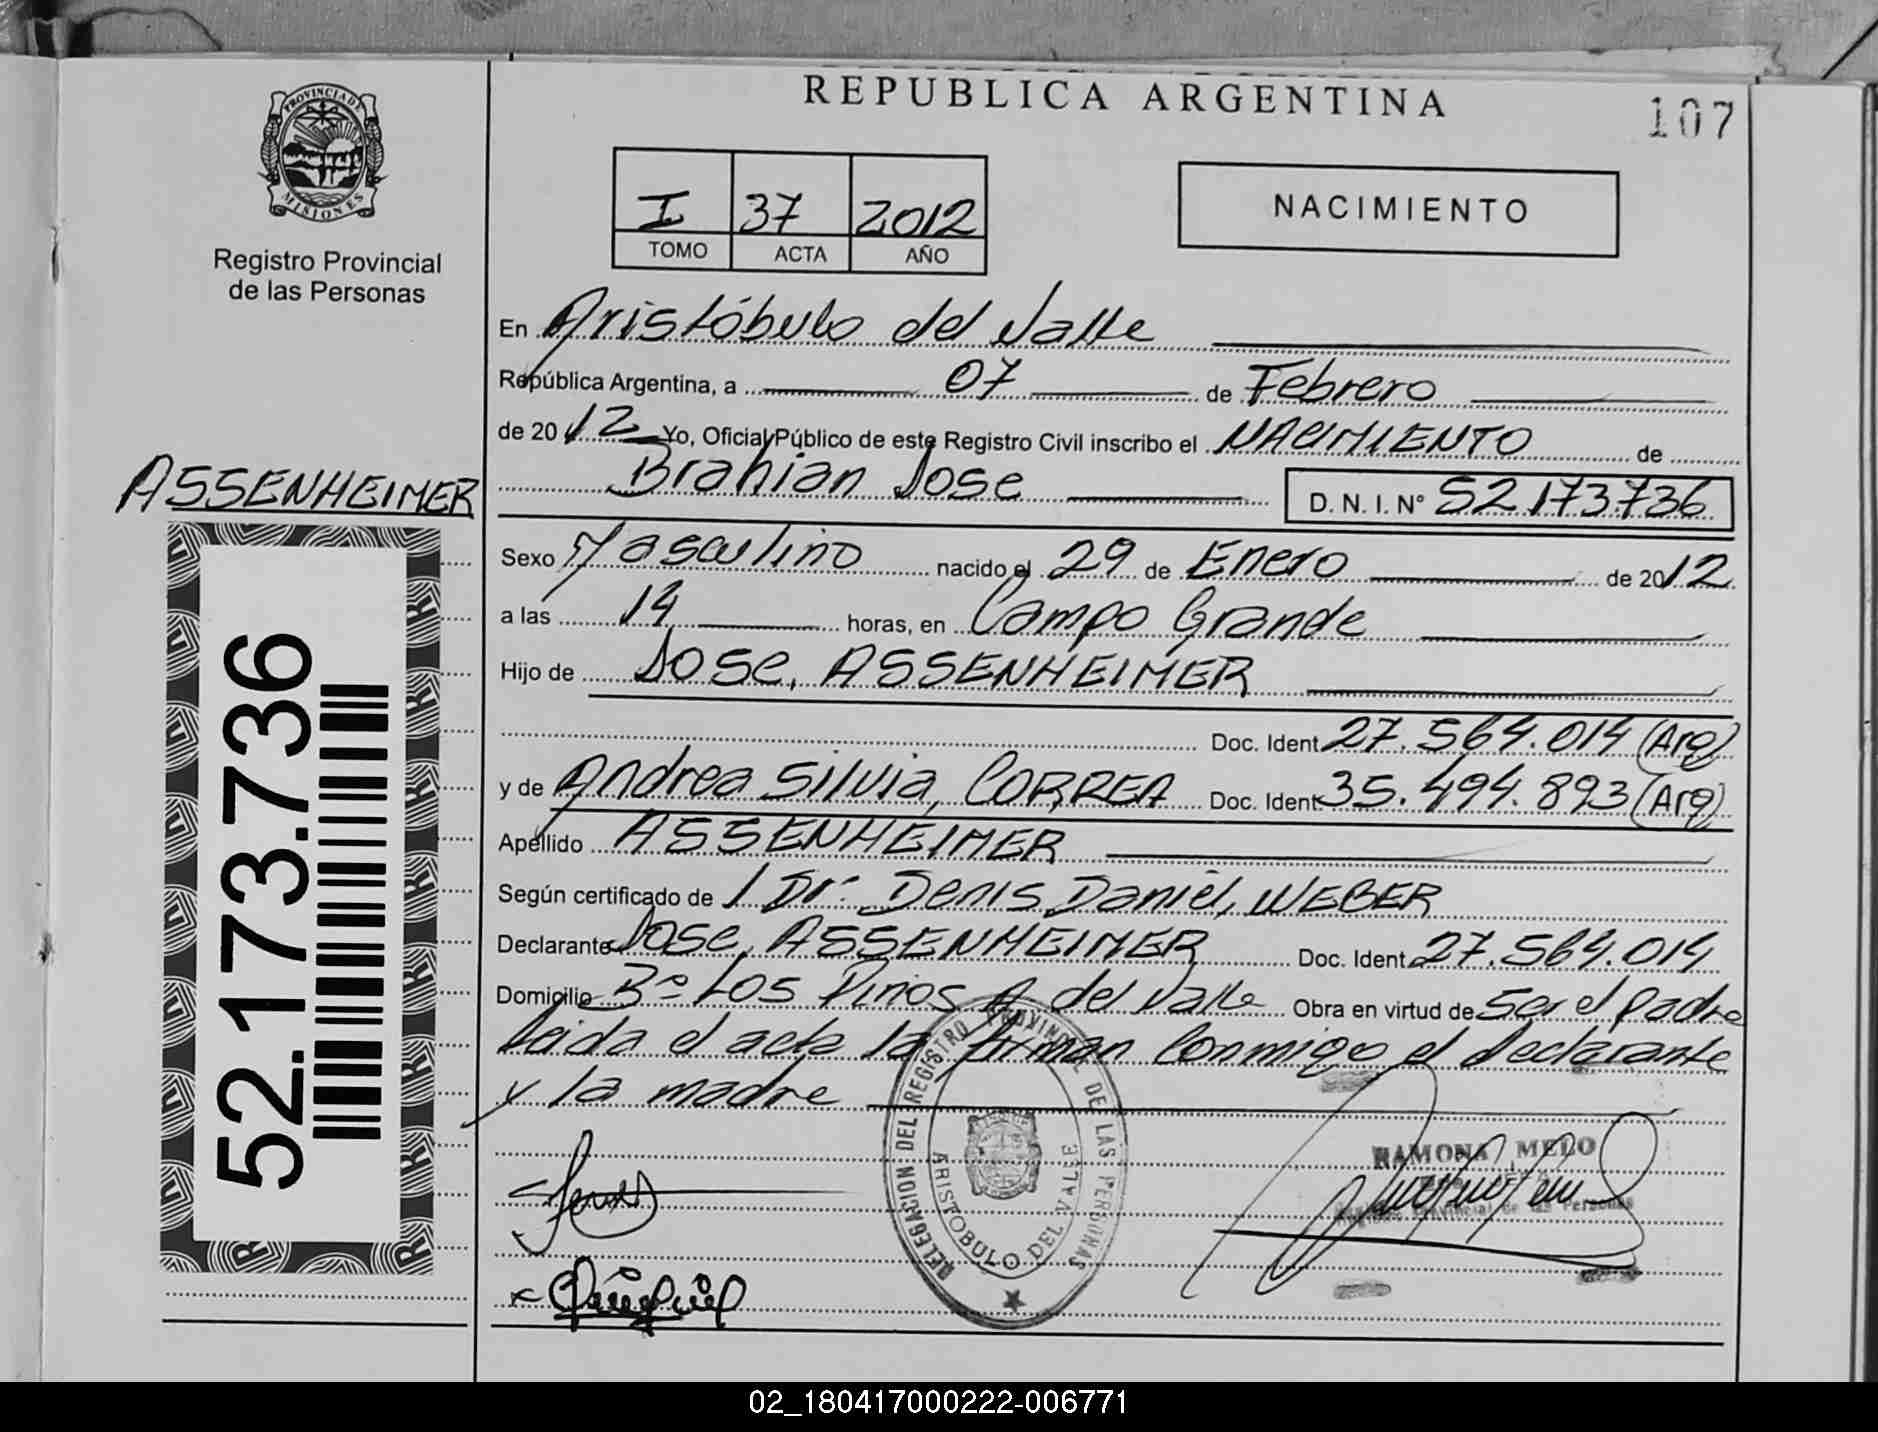 PROVINCIA DE
MISIONES
Registro Provincial
de las Personas
ASSENHEIMER
52.173.736
REPUBLICA ARGENTINA
107
I 37 2012
TOMO ACTA AÑO
NACIMIENTO
En Aristóbulo del Valle
República Argentina, a 07 de Febrero
de 2012 Yo, Oficial Público de este Registro Civil inscribo el NACIMIENTO de
Brahian Jose D. N. I. N° 52.173.736
Sexo Masculino nacido el 29 de Enero de 2012
a las 14 horas, en Campo Grande
Hijo de Jose, ASSENHEIMER
Doc. Ident 27.564.014 (Arg)
y de Andrea Silvia, CORREA Doc. Ident 35.494.893 (Arg)
Apellido ASSENHEIMER
Según certificado de / Dr. Denis Daniel, WEBER
Declarante Jose, ASSENHEIMER Doc. Ident 27.564.014
Domicilio Bº Los Pinos A. del Valle Obra en virtud de Ser el padre
Leida el acta la firman Conmigo el declarante
y la madre
DELEGACION DEL REGISTRO PROVINCIAL DE LAS PERSONAS
ARISTOBULO DEL VALLE
RAMONA MELO
Registro Provincial de las Personas
02_180417000222-006771